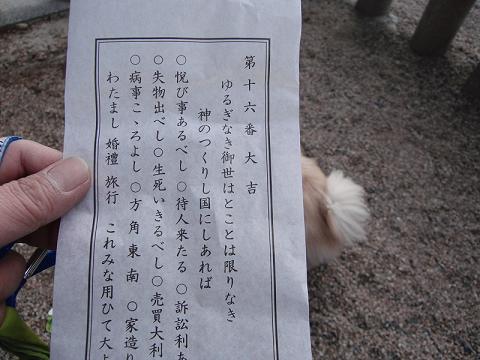 第十六番大吉
ゆるぎなき御世はとことは限りなき
神のつくりし国にしあれば
○悦び事あるべし○待人来たる○訴訟利あ
○失物出べし○生死いきるべし○売買大利
○病事こゝろよし○方角東南○家造り
わたまし婚禮旅行これみな用ひて大よ